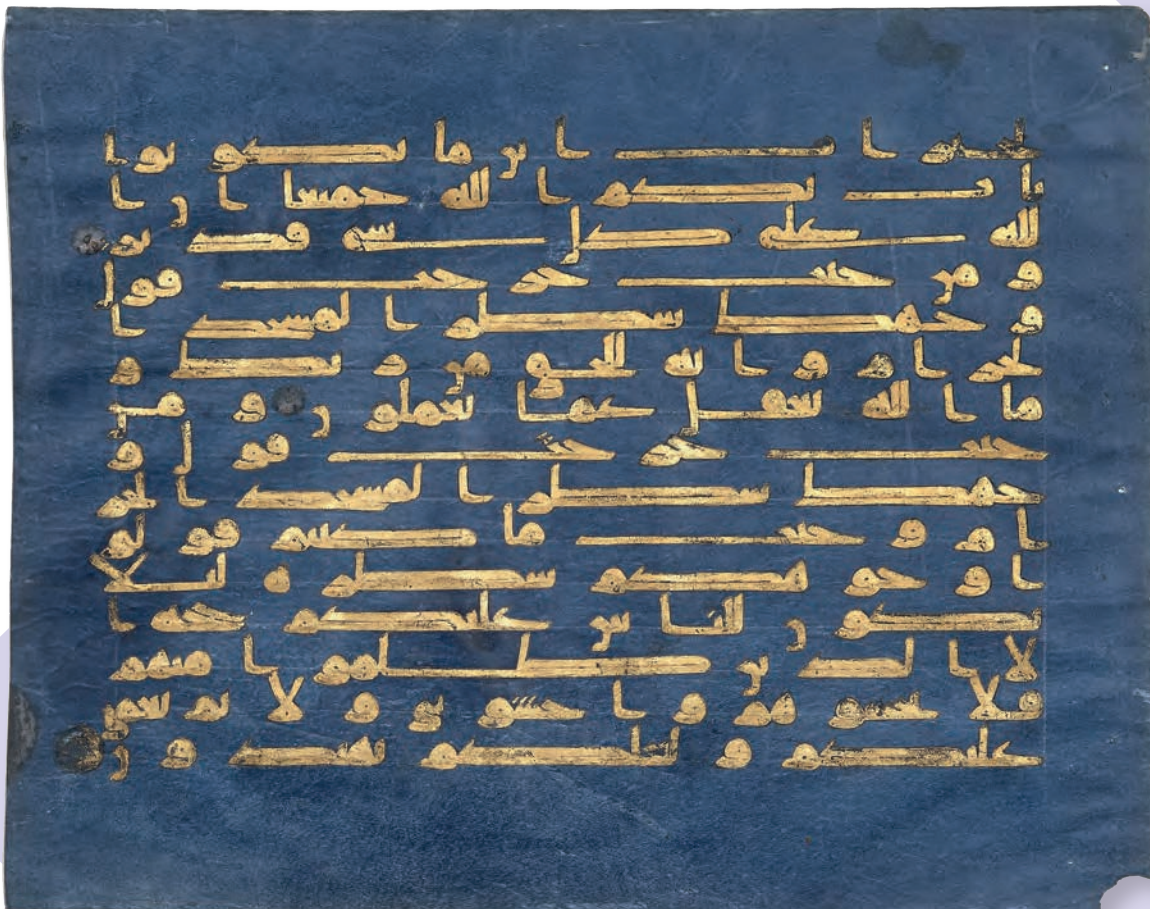 لخيرات اين ما تكونوا
يات بكم الله جميعا ان ا
لله على كل شى قدير
و من حيث خرجت فول
و جهك شطر المسجد ا
لحرام و انه للحق من ربك و
ما الله بغفل عما تعملون و من
حيث خرجت فول و
جهك شطر المسجد الحر
ام و حيث ما كنتم فولو
ا وجوهكم شطره لئلا
يكون للناس عليكم حجة ا
لا الذين ظلموا منهم
فلا تخشوهم و اخشونى و لاتم نعمتى
عليكم و لعلكم تهتدون